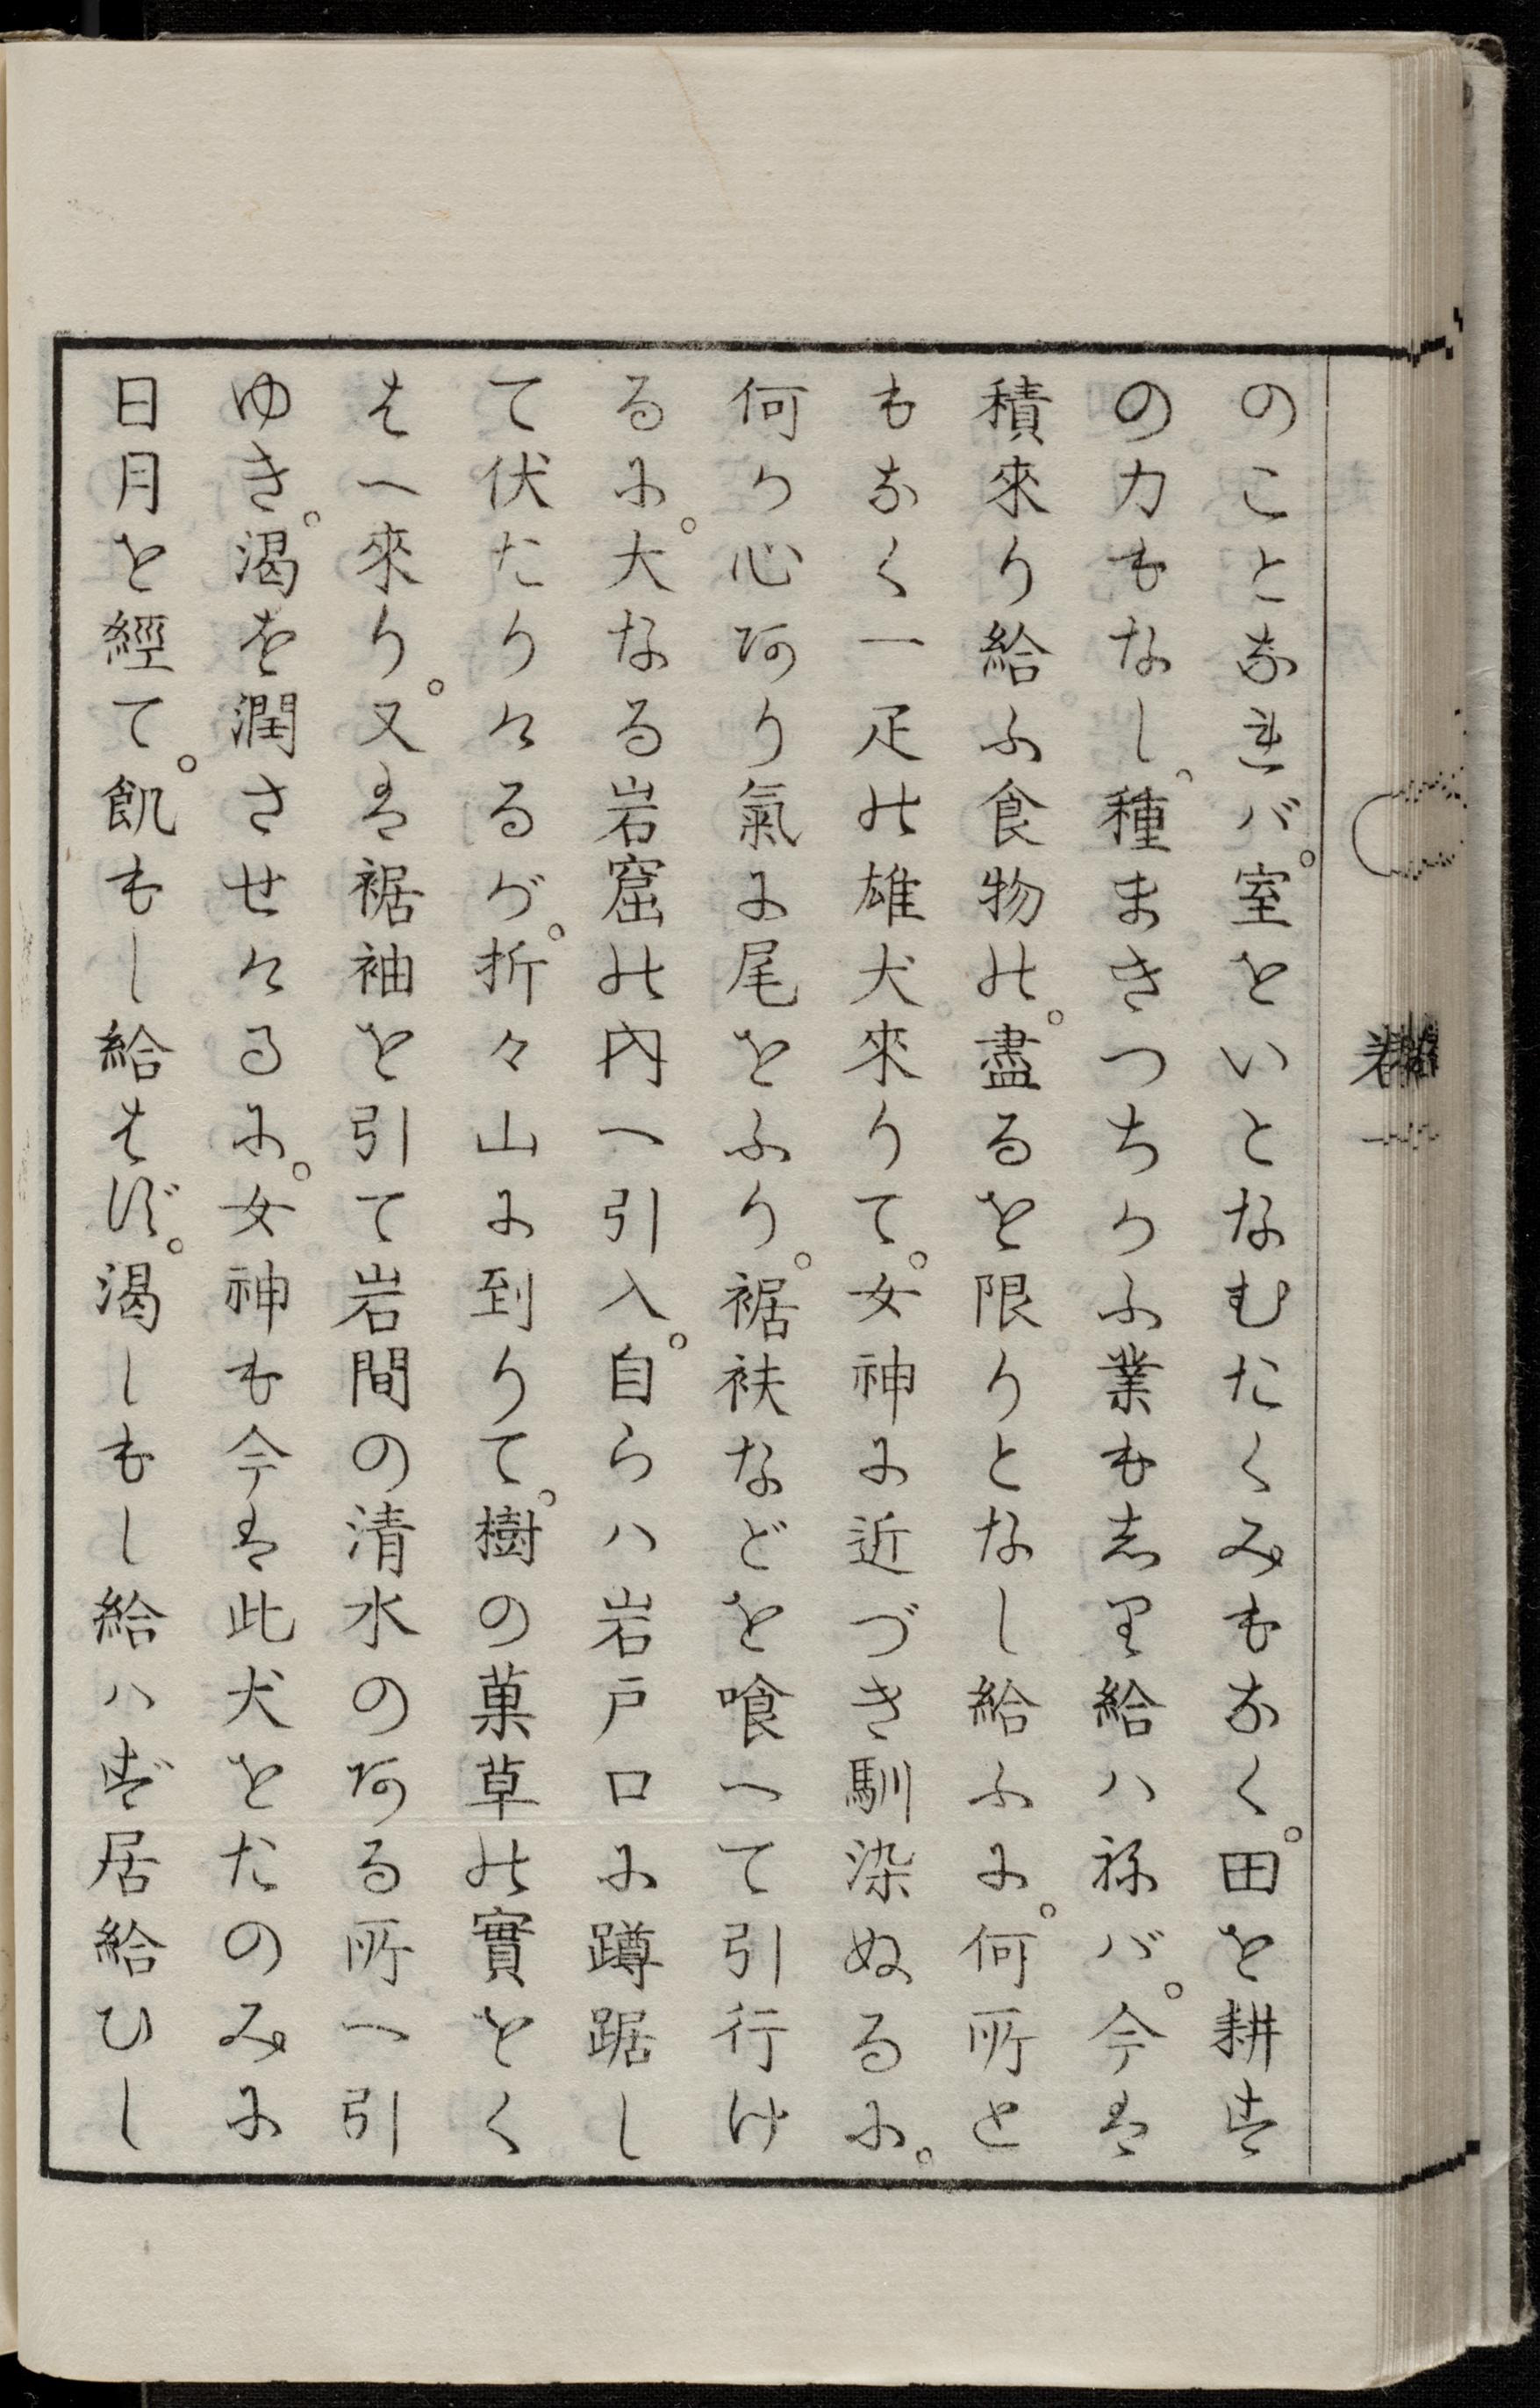 のことなれバ。室をいとなむたくみもなく。田を耕す
の力もなし。種まきつちかふ業もしり給ハねバ。今は
積來り給ふ食物の。盡るを限りとなし給ふに。何所と
もなく一疋の雄犬來りて。女神に近づき馴染ぬるに。
何か心あり氣に尾をふり。裾袂などを喰へて引行け
るに。大なる岩窟の内へ引入。自らハ岩戸口に蹲踞し
て伏たりけるが。折々山に到りて。樹の菓草の實をく
はへ來り。又は裾袖を引て岩間の清水のある所へ引
ゆき。渇を潤させけるに。女神も今は此犬をたのみに
日月を經て。飢もし給はず。渇しもし給ハず居給ひし